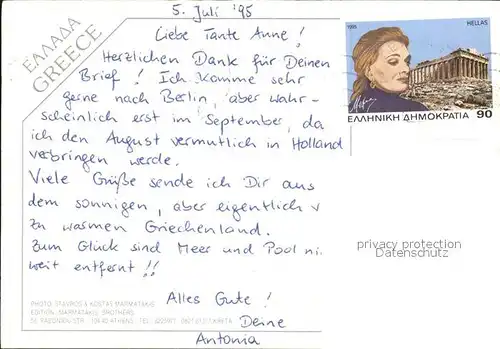 5. Juli '95
Liebe Tante Anne!
Herzlichen Dank für Deinen
Brief! Ich komme sehr
gerne nach Berlin, aber wahr-
scheinlich erst im September, da
ich den August vermutlich in Holland
verbringen werde.
Viele Grüße sende ich Dir aus
dem sonnigen, aber eigentlich v
zu warmen Griechenland.
Zum Glück sind Meer und Pool ni
weit entfernt!!
Alles Gute!
Deine
Antonia
ΕΛΛΑΔΑ
GREECE
1995
HELLAS
ΕΛΛΗΝΙΚΗ ΔΗΜΟΚΡΑΤΙΑ 90
privacy protection
Datenschutz
PHOTO: STAVROS & KOSTAS MARMATAKIS
EDITION: MARMATAKIS BROTHERS
ATHENS TEL.